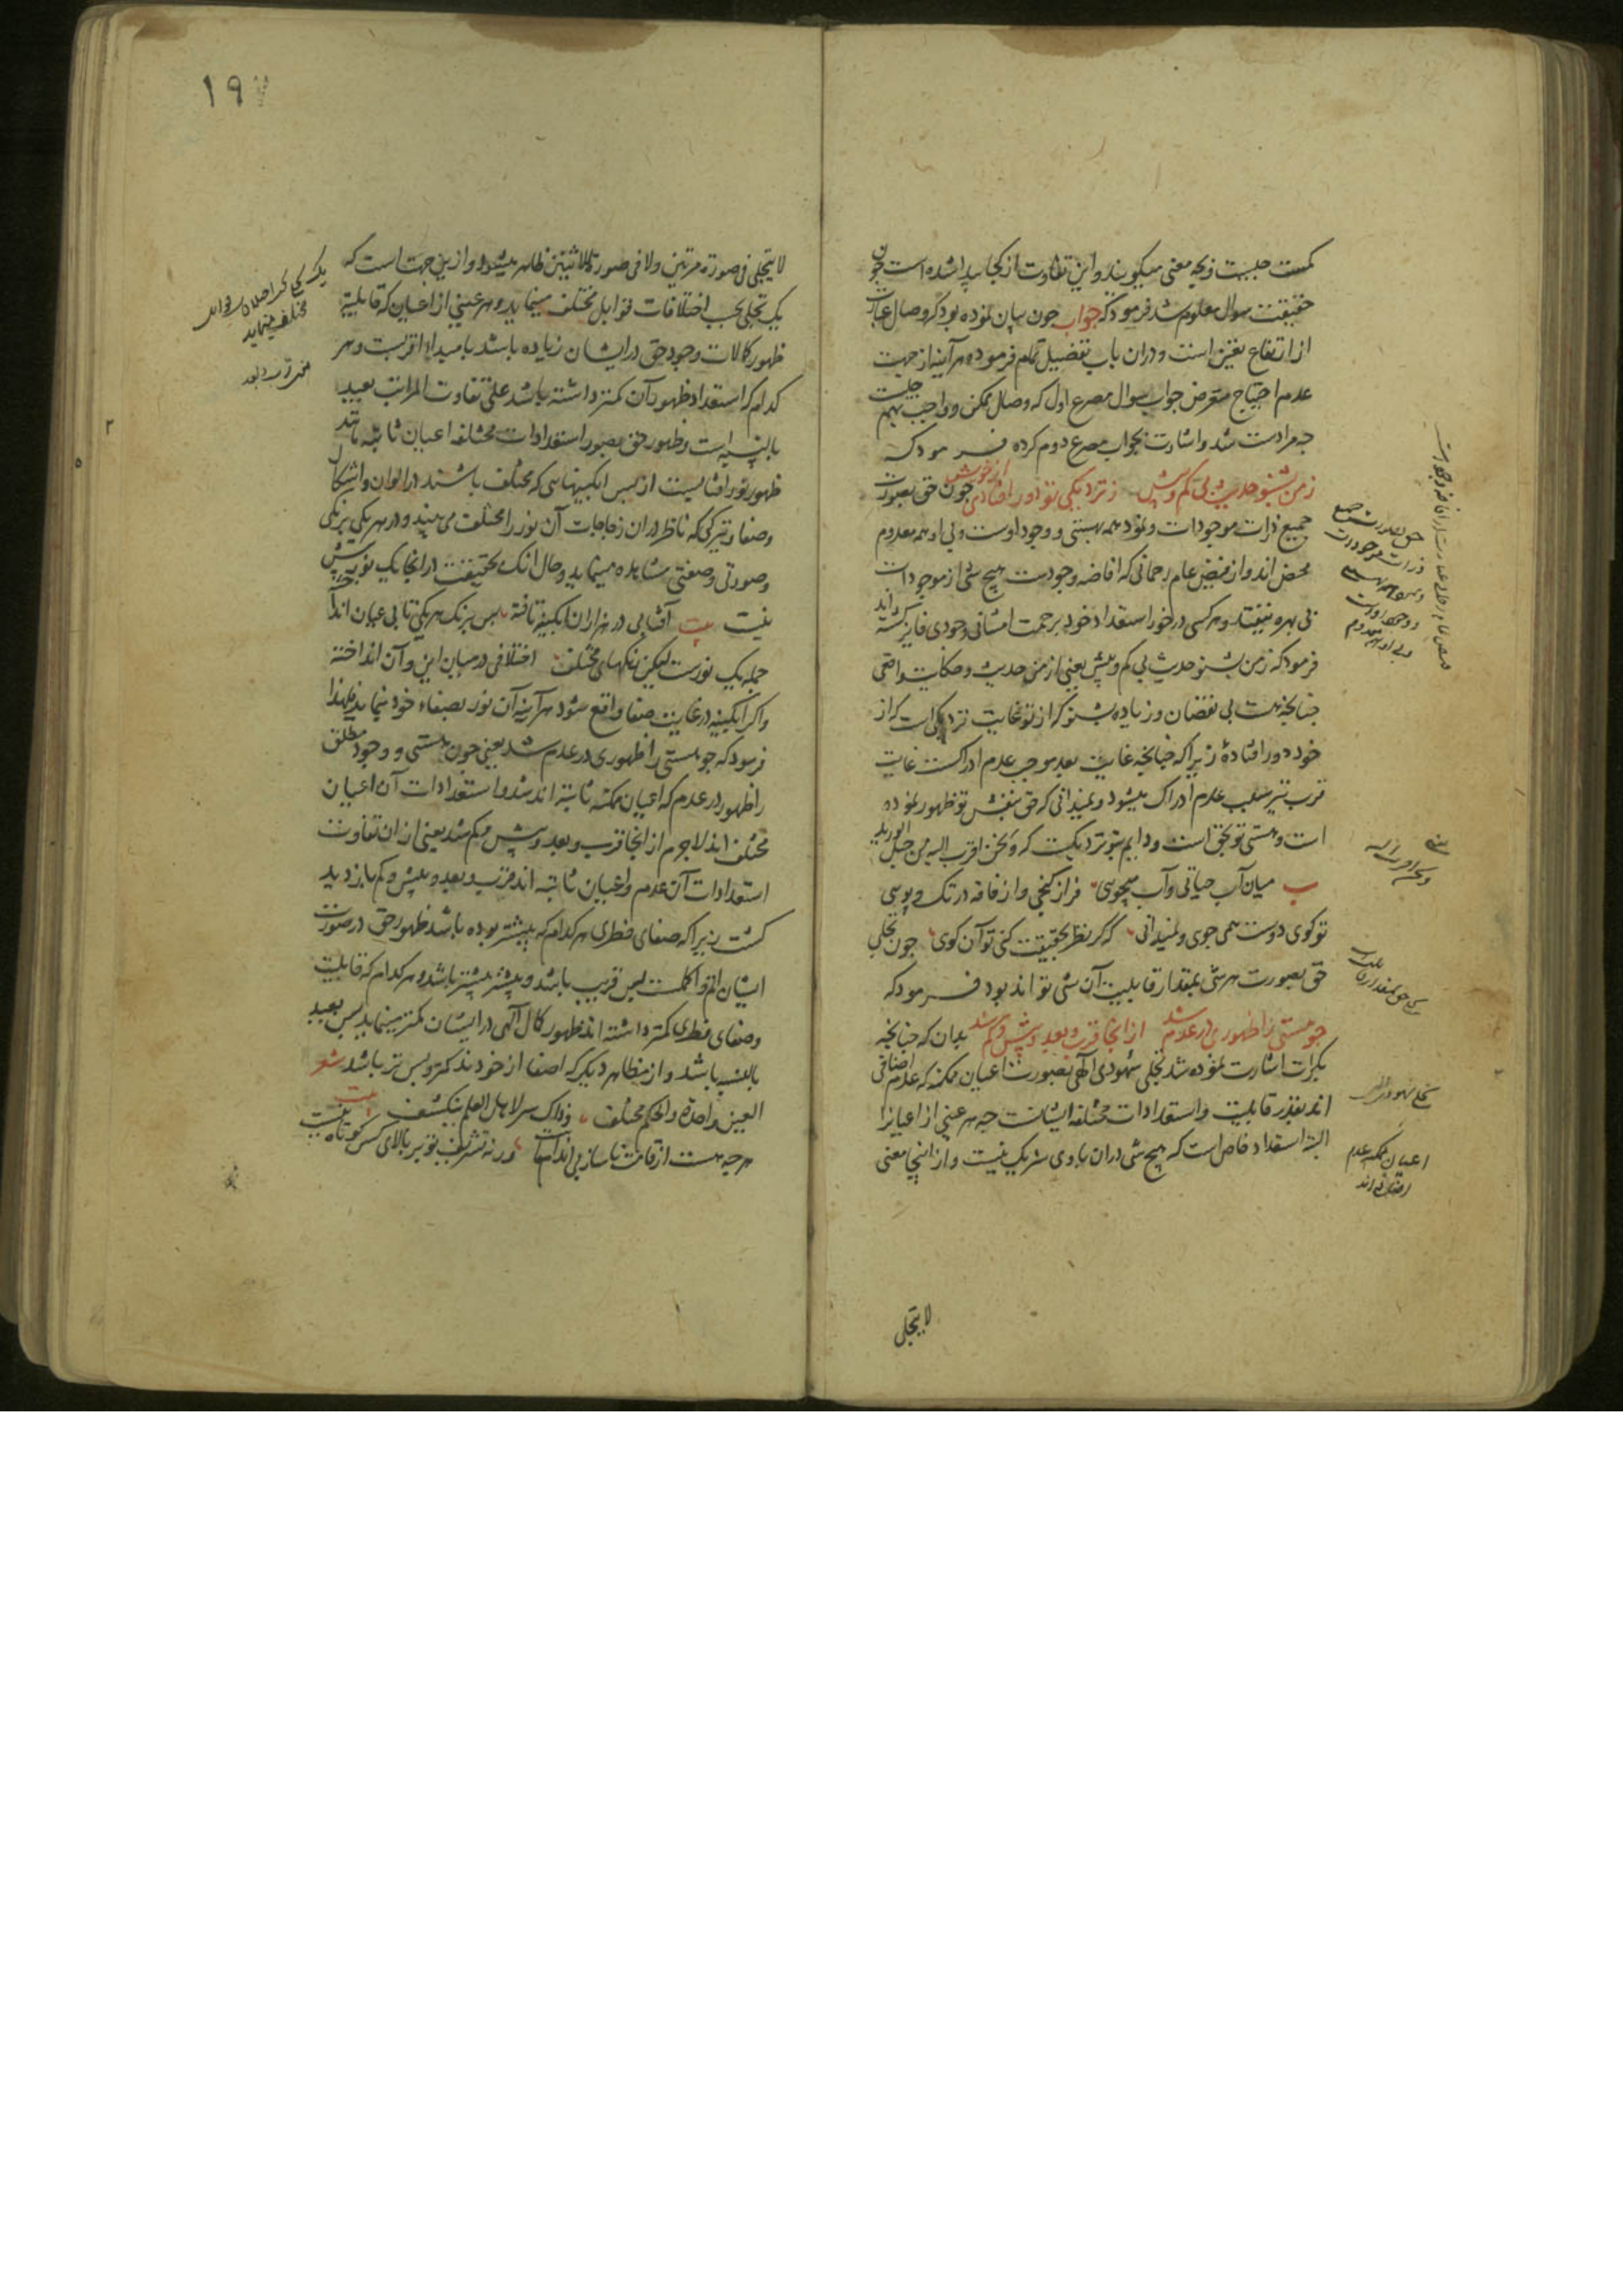 کمست چیست و بچه معنی میگویند و این تفاوت از کجا پیدا شده است چون
حقیقت سوال معلوم شد فرمود که جواب چون بیان نموده بود که وصال عبارت
از ارتفاع تعین است و دران باب تفصیل تمام فرموده هر آینه از جهت
عدم احتیاج متعرض جواب سوال مصرع اول که وصال ممکن و واجب بهم چیست
چه مرادست نشد و اشارت بجواب مصرع دوم کرده فرمود که
ز من بشنو حدیث بی کم و بیش ز نزدیکی تو دور افتادی از خویش چون حق بصورت
جمیع ذرات موجودات و نمود همه بهستی و وجود اوست و بی او همه معدوم
محض اند و از فیض عام رحمانی که افاضه وجودست هیچ شیٔ از موجودات
بی بهره نیفتاد و هر کسی در خور استعداد خود برحمت امتنانی وجودی فایز گشته اند
فرمود که ز من بشنو حدیث بی کم و بیش یعنی از من حدیث و حکایت واقعی
چنانچه هست بی نقصان و زیاده بشنو که از تو غایت نزدیکی است که از
خود دور افتادهٔ زیرا که چنانچه غایت بعد موجب عدم ادراکست غایت
قرب نیز سبب عدم ادراک میشود و نمیدانی که حق بنقش تو ظهور نموده
است و هستی تو بحق است و دایم بتو نزدیکست که و نحن اقرب الیه من حبل الورید
میان آب حیاتی و آب میجویی فراز گنجی و از فاقه در تک و پویی
تو کوی دوست همی جوی و نمیدانی که گر نظر بحقیقت کنی تو آن کویی چون تجلی
حق بصورت هر شیٔ بمقدار قابلیت آن شیٔ تواند بود فرمود که
چو هستی را ظهوری در عدم شد از آنجا قرب و بعد و بیش و کم شد بدان که چنانچه
بکرات اشارت نموده شد تجلی شهودی الهی بصورت اعیان ممکنه که عدم اضافی
اند بقدر قابلیت و استعدادات مختلفه ایشانست چه هر عینی از اعیانرا
البته استعداد خاص است که هیچ شیٔ دران با وی شریک نیست و از اینجا معنی
اعیان ممکنه عدم
اضافی اند
لا یتجلی
۱۹
لا یتجلی فی صورة مرتین ولا فی صورة لاثنین ظاهر میشود و ازین جهت است که
یک تجلی بحسب اختلافات قوابل مختلف مینماید و هر عینی از اعیان که قابلیت
ظهور کمالات وجود حق در ایشان زیاده باشد بامبداء اقربست و هر
کدام که استعداد ظهور آن کمتر داشته باشد علی تفاوت المراتب بعید
بالنسبه است و ظهور حق بصور استعدادات مختلفه اعیان ثابته مانند
ظهور نور آفتابست از پس آبگینهایی که مختلف باشند در الوان و اشکال
وصفا و تیرگی که ناظر در آن زجاجات آن نور را مختلف می بیند و در هر یکی برنگی
و صورتی و صفتی مشاهده مینماید و حال آنک بحقیقت در آنجا یک نور بیش
نیست بیت آفتابی در هزاران آبگینه تافته پس برنگ هر یکی تابی عیان انداخته
جمله یک نورست لیکن رنگهای مختلف اختلافی در میان این و آن انداخته
و اگر آبگینه در غایت صفا واقع شود هر آینه آن نور بصفاء خود نماید لهذا
فرمود که چو هستی را ظهوری در عدم شد یعنی چون هستی و وجود مطلق
را ظهور در عدم که اعیان ممکنه ثابته اند شد و استعدادات آن اعیان
مختلف اند لاجرم از آنجا قرب و بعد و بیش و کم شد یعنی ازان تفاوت
استعدادات آن عدم و اعیان ثابته اند قرب و بعد و بیش و کم بازدید
گشت زیرا که صفای فطری هر کدام که بیشتر بوده باشد ظهور حق در صورت
ایشان اتم و اکملست پس قریب باشد و بیشتر بیشتر باشد و هر کدام که قابلیت
وصفای فطری کمتر داشته اند ظهور کمال الهی در ایشان کمتر مینماید پس بعید
بالنسبه باشد و از مظاهر دیگر که اصفا از خودند کمتر و پس تر باشد شعر
العین واحدة والحکم مختلف وذاک سر لاهل العلم ینکشف بیت
هر چه هست از قامت ناساز بی اندام ماست ورنه تشریف تو بر بالای کس کوتاه نیست
مختلف مینماید